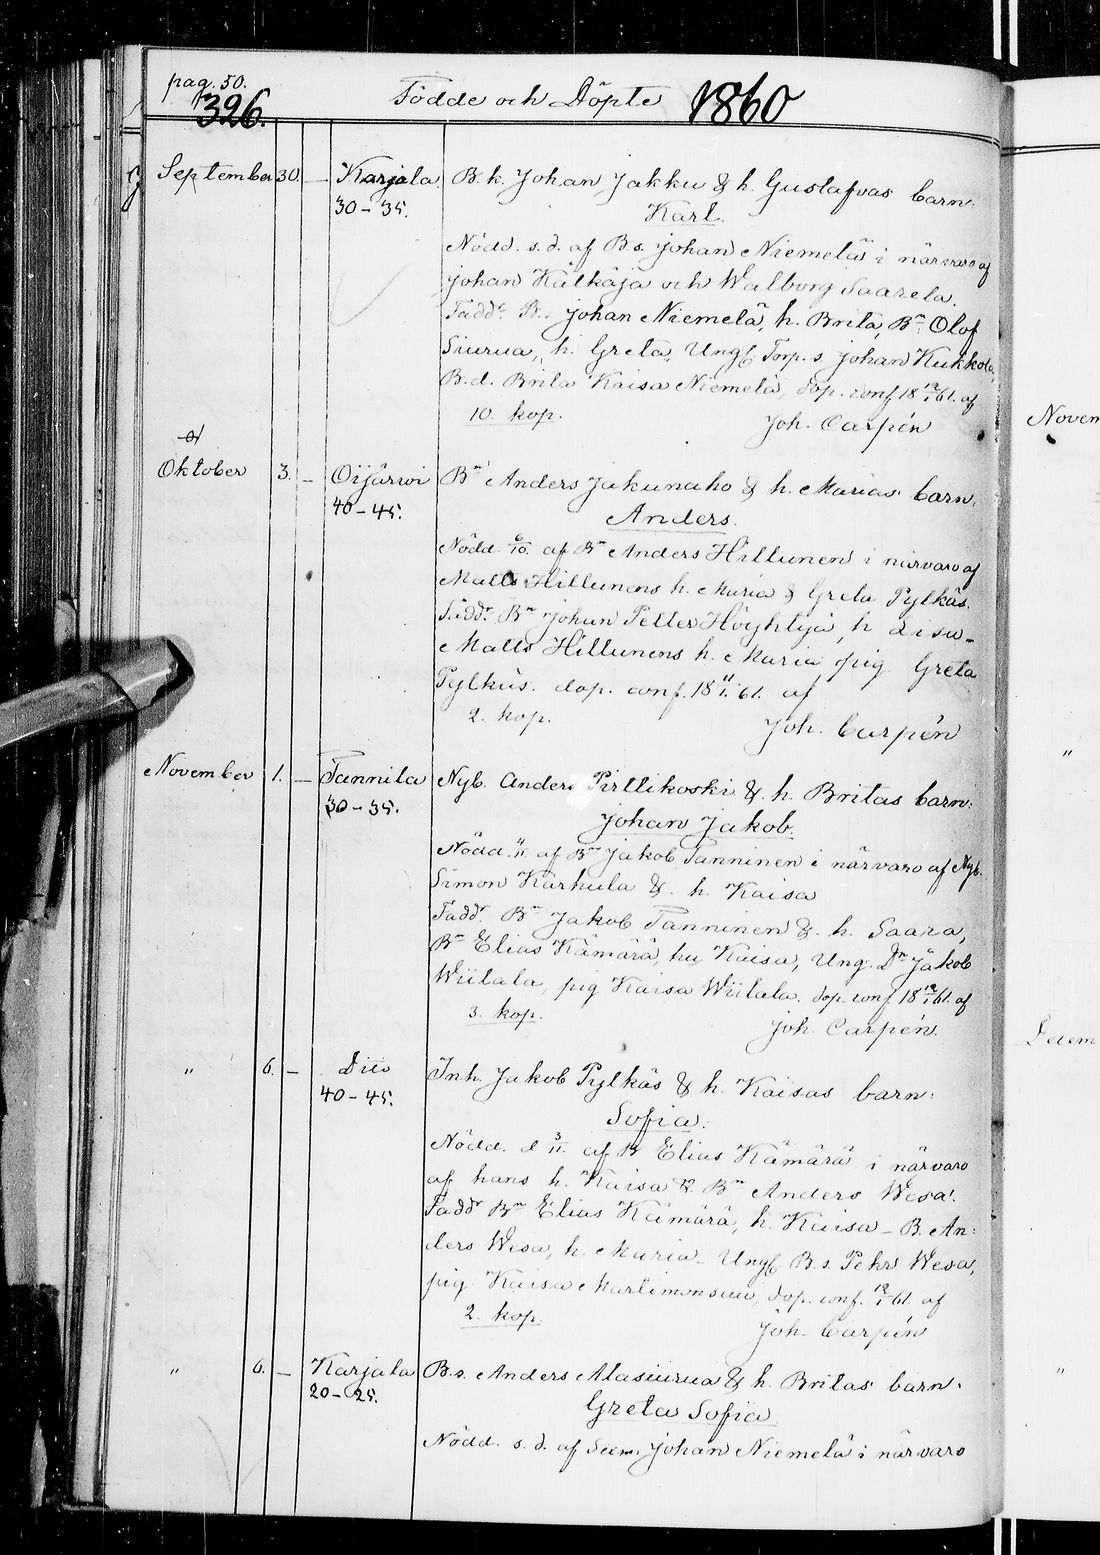 pag. 50.
326.
Födde och Döpte 1860
September 30. — Karjala B.k. Johan Jakku & h. Gustafvas barn:
30-35. Karl.
Nödd. s.d. af B.s. Johan Niemelä i närvaro af
Johan Kälkäjä och Walborg Saarela.
Fadd. B. Johan Niemelä, h. Brita, Bn Olof
Siurua, h. Greta, Ungk Torp.s. Johan Kukkola,
B.d. Brita Kaisa Niemelä, dop. conf. 18 12/1 61. af
10. kop. Joh. Carpén
Oktober 3. — Oijärwi Bn Anders Jakunaho & h. Marias barn:
40-45. Anders.
Nödd. 6/10. af Bn Anders Hiltunen i närvaro af
Matts Hiltunens h. Maria & Greta Pylkäs.
Fadd. Bn Johan Petter Höyhtyä, h Lisa-
Matts Hiltunens h. Maria pig Greta
Pylkäs. dop. conf. 18 11/1 61. af
2. kop. Joh. Carpén
November 1. — Tannila Nyb. Anders Pirttikoski & h. Britas barn:
30-35. Johan Jakob.
Nödd. 4/11. af Bn Jakob Tanninen i närvaro af Nyb.
Simon Karhula & h. Kaisa
Fadd. Bn Jakob Tanninen & h. Saara,
Bn Elias Kämärä, hu Kaisa, Ung. Dn Jakob
Wiitala, pig Kaisa Wiitala. dop. conf. 18 12/1 61. af
3. kop. Joh. Carpén.
" 6. — Dito Inh. Jakob Pylkäs & h. Kaisas barn:
40-45. Sofia.
Nödd. d 3/11. af B Elias Kämärä i närvaro
af hans h. Kaisa & Bn Anders Wesa.
Fadd Bn Elias Kämärä, h. Kaisa - B. An-
ders Wesa, h. Maria - Ungk B.s. Pehr Wesa,
pig Kaisa Martimonsuu, dop. conf. 12/1 61. af
2. kop. Joh. Carpén
" 6. — Karjala B.s. Anders Alasiurua & h. Britas barn:
20-25. Greta Sofia
Nödd. s.d. af Sexm. Johan Niemelä i närvaro
Novem
"
Decem
"